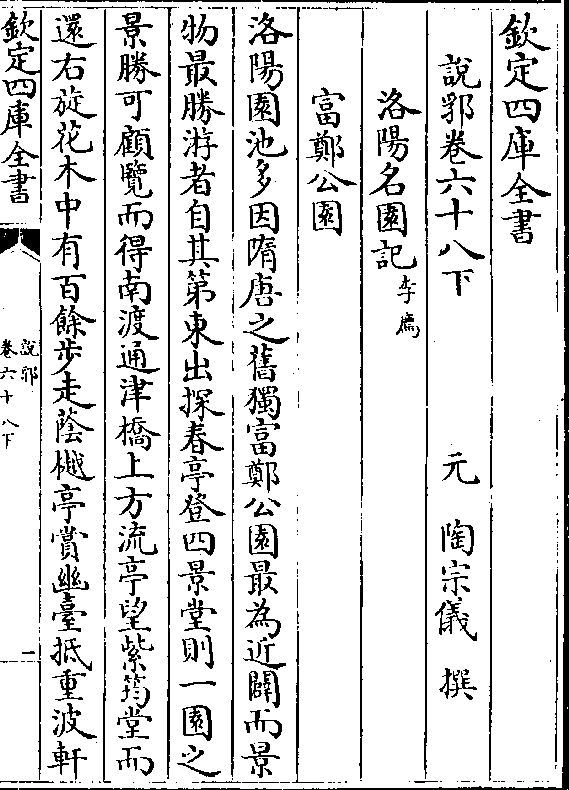 欽定四庫全書
說郛卷六十八下
元 陶宗儀 撰
洛陽名園記李廌
富鄭公園
洛陽園池多因隋唐之舊獨富鄭公園最為近闢而景
物最勝游者自其第東出探春亭登四景堂則一園之
景勝可顧覽而得南渡通津橋上方流亭望紫筠堂而
還右旋花木中有百餘步走蔭樾亭賞幽臺抵重波軒
欽定四庫全書
說郛
卷六十八下
一